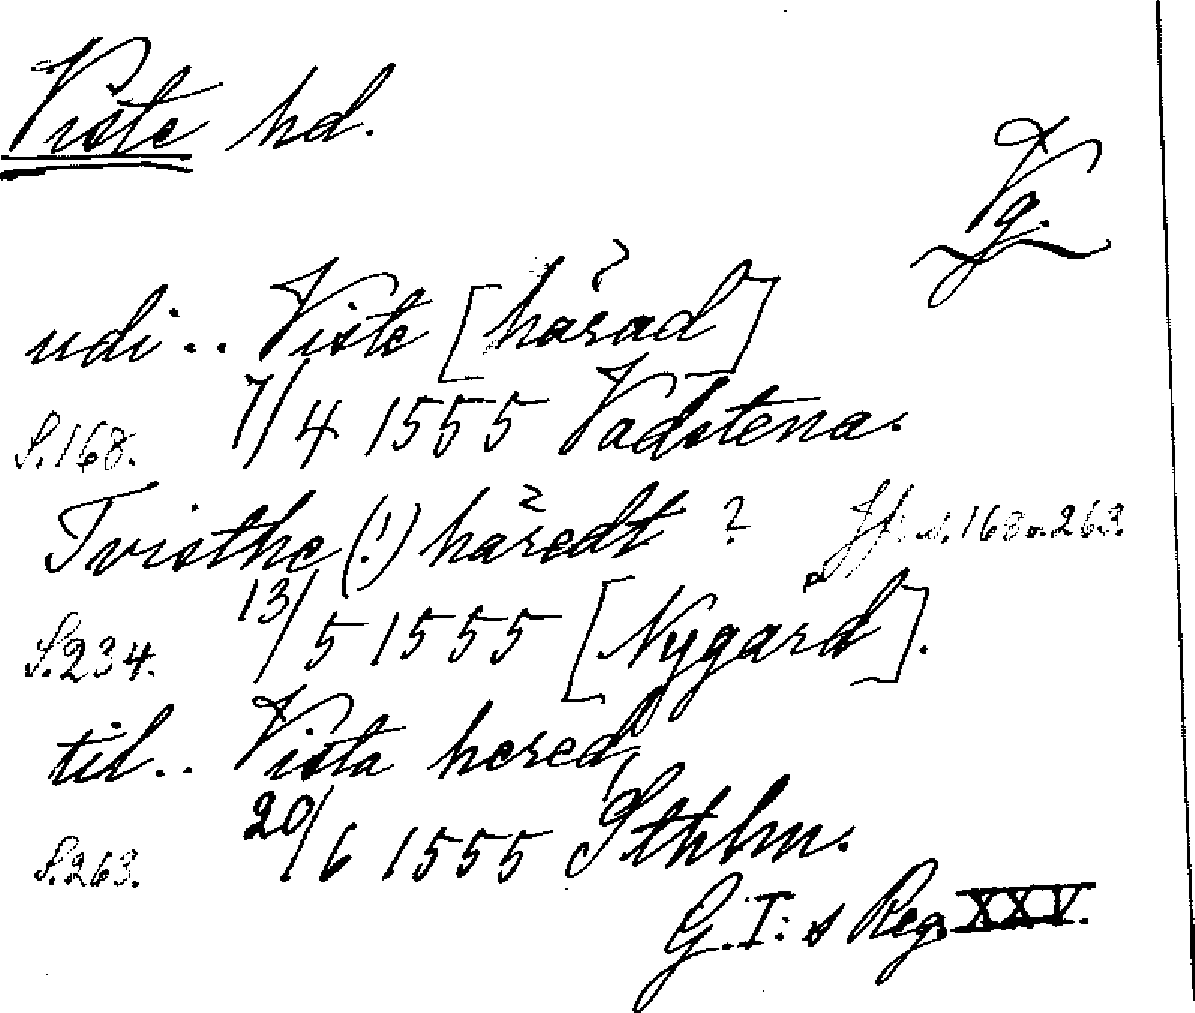 Viste hd.
Vg.
udi .. Viste [härad]
S. 168. 7/4 1555 Vadstena.
Tvisthe (!) häredt ? Jfr s. 168 o. 263.
S. 234. 13/5 1555 [Nygård].
til .. Vista hered
S. 263. 20/6 1555 Sthlm.
G. I:s Reg. XXV.